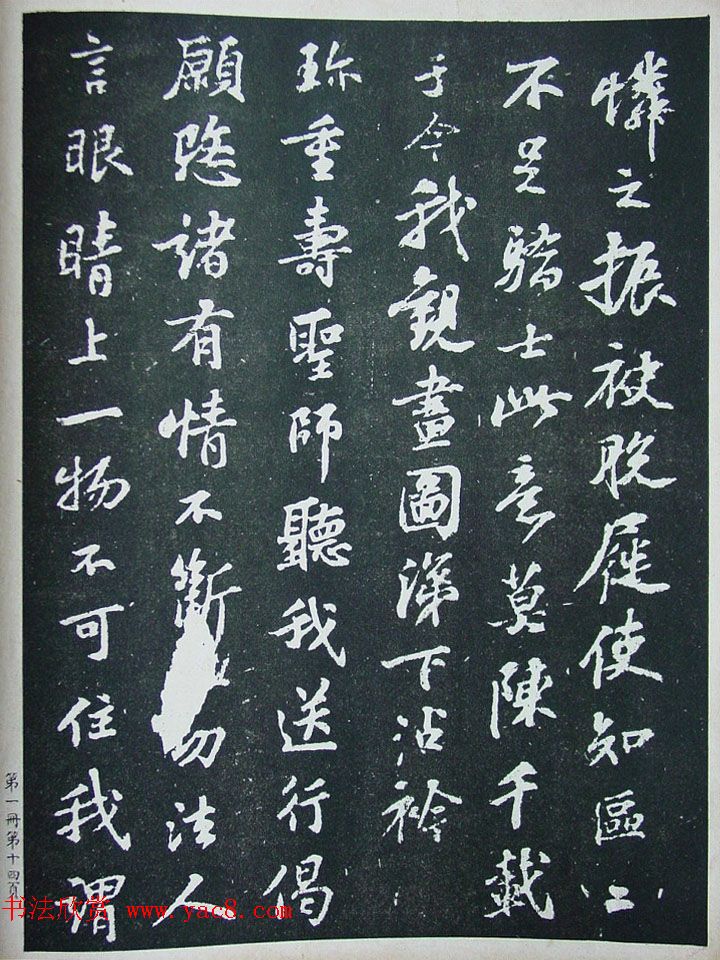 憐之振被脫屣使知區〻
不足驕士此意莫陳千載
于今我觀畫圖涕下沾衿
珍重壽聖師聽我送行偈
願愍諸有情不斷切法人
言眼睛上一物不可住我謂
第一冊第十四頁
书法欣赏 www.yac8.com